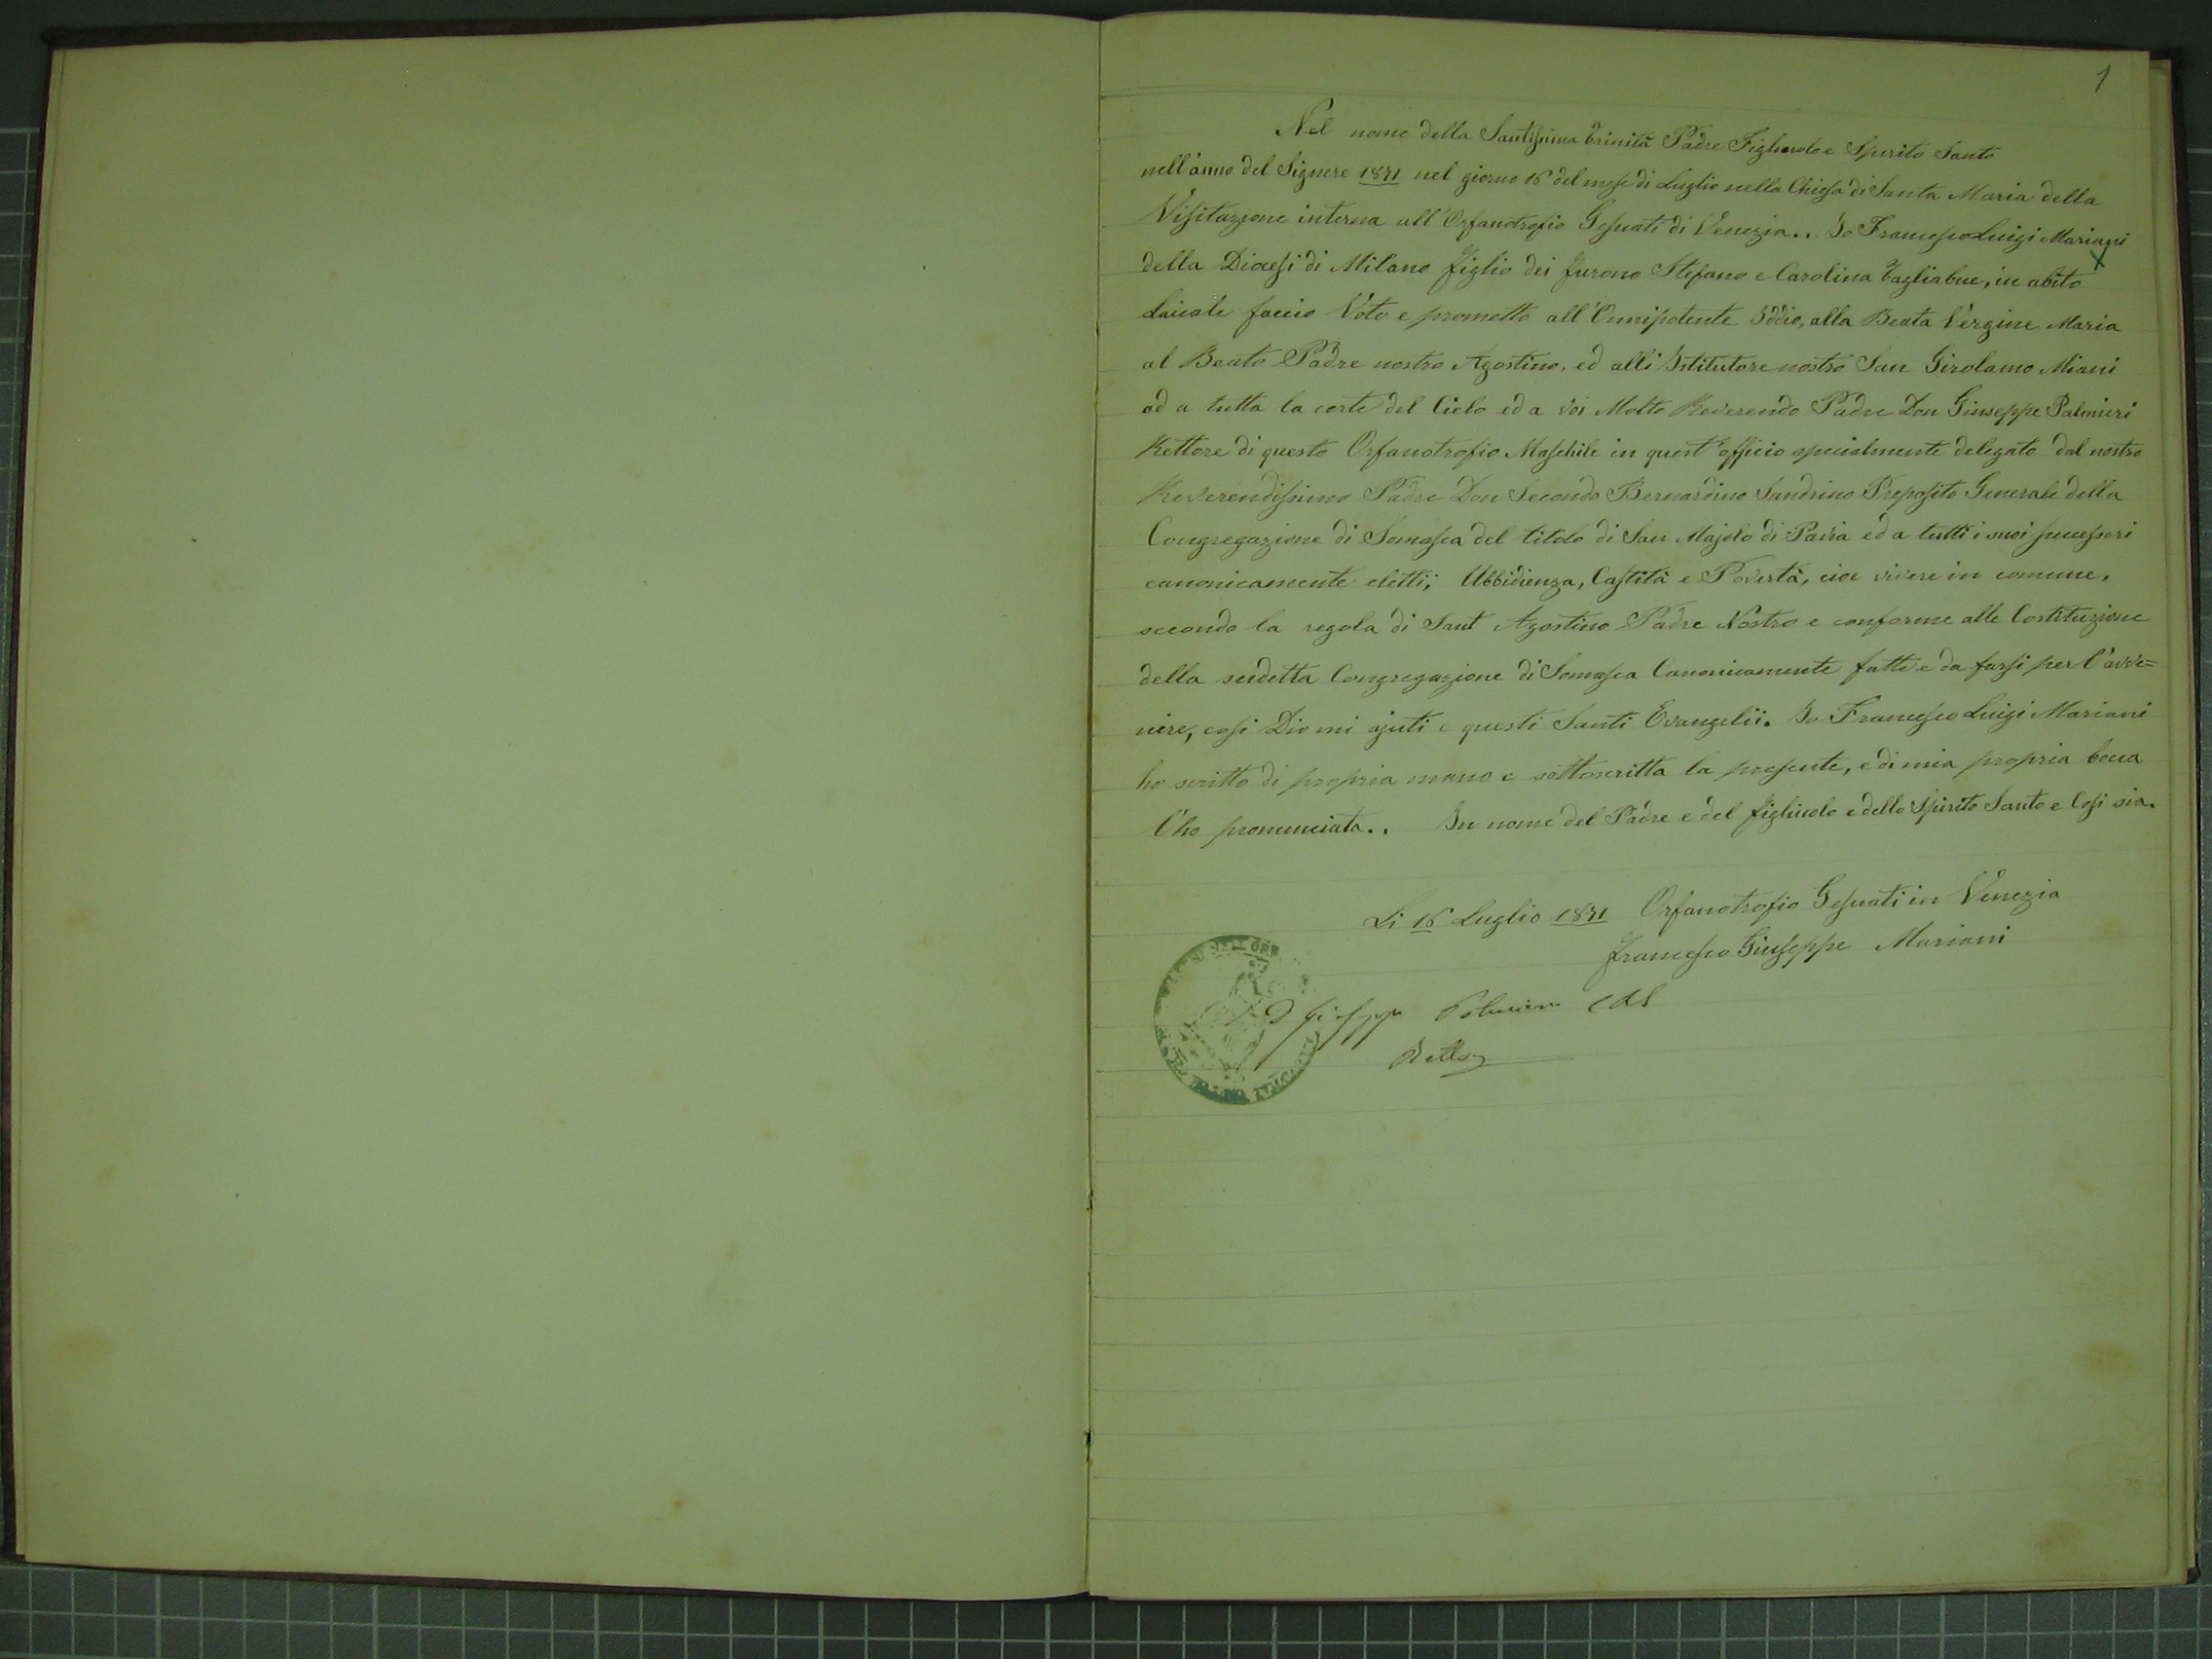 1
Nel nome della Santissima Trinità Padre Figliuolo e Spirito Santo
nell'anno del Signore 1871 nel giorno 16 del mese di Luglio nella Chiesa di Santa Maria della
Visitazione interna all'Orfanotrofio Gesuati di Venezia.. Io Francesco Luigi Mariani
X
della Diocesi di Milano figlio dei furono Stefano e Carolina Tagliabue, in abito
Laicale faccio Voto e prometto all'Onnipotente Iddio, alla Beata Vergine Maria
al Beato Padre nostro Agostino, ed alli Istitutore nostro San Girolamo Miani
ad a tutta la corte del Cielo ed a voi Molto Reverendo Padre Don Giuseppe Palmieri
Rettore di questo Orfanotrofio Maschile in quest'officio specialmente delegato dal nostro
Reverendissimo Padre Don Secondo Bernardino Sandrino Preposito Generale della
Congregazione di Somasca del titolo di San Majolo di Pavia ed a tutti i suoi successori
canonicamente eletti; Ubbidienza, Castità e Povertà, cioe vivere in comune,
secondo la regola di Sant Agostino Padre Nostro e conforme alle Costituzione
della sudetta Congregazione di Somasca Canonicamente fatte e da farsi per l'avve=
nire, cosi Dio mi ajuti e questi Santi Evangelii. Io Francesco Luigi Mariani
ho scritto di propria mano e sottoscritta la presente, e di mia propria bocca
l'ho pronunciata.. In nome del Padre e del figliuolo e dello Spirito Santo e Cosi sia.
Li 16 Luglio 1871 Orfanotrofio Gesuati in Venezia
Francesco Giuseppe Mariani
D Giuseppe Palmieri CRS
Rettore